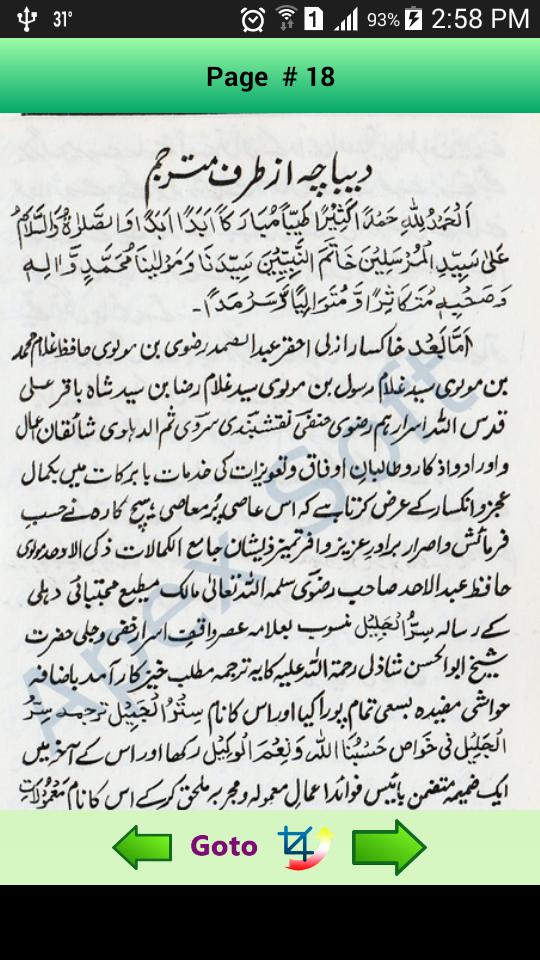 31°
1
93%
2:58 PM
Page # 18
دیباچہ از طرف مترجم
اَلْحَمْدُ لِلّٰهِ حَمْدًا كَثِيْرًا طَيِّبًا مُبَارَكًا اَبَدًا اَبَدًا وَالصَّلٰوةُ وَالسَّلَامُ
عَلٰى سَيِّدِ الْمُرْسَلِيْنَ خَاتَمِ النَّبِيِّيْنَ سَيِّدِنَا وَمَوْلٰينَا مُحَمَّدٍ وَّاٰلِهٖ
وَصَحْبِهٖ مُتَكَاثِرًا وَّمُتَوَالِيًا وَّسَرْمَدًا۔
اَمَّا بَعْد خاکسار ازلی احقر عبدالصمد رضوی بن مولوی حافظ غلام محمد
بن مولوی سید غلام رسول بن مولوی سید غلام رضا بن سید شاہ باقر علی
قدس اللہ اسرارہم رضوی حنفی نقشبندی سروی ثم الدہلوی شائقان اعمال
و اوراد و اذکار و طالبان اوفاق و تعویزات کی خدمات بابرکات میں بکمال
عجز و انکسار کے عرض کرتا ہے کہ اس عاصی پُر معاصی ہیچ کارہ نے حسب
فرمائش و اصرار برادر عزیز وافر تمیز ذیشان جامع الکمالات ذکی الاوحد مولوی
حافظ عبدالاحد صاحب رضوی سلمہ اللہ تعالیٰ مالک مطبع مجتبائی دہلی
کے رسالہ سِرُّ الْجَلِیْل منسوب بعلامہ عصر واقف اسرار خفی و جلی حضرت
شیخ ابوالحسن شاذلی رحمۃ اللہ علیہ کا یہ ترجمہ مطلب خیز کارآمد باضافہ
حواشی مفیدہ بسعی تمام پورا کیا اور اس کا نام سِتْرُ الْجَمِیْل ترجمہ سِرُّ
الْجَلِیْل فی خواص حَسْبُنَا اللّٰہ وَنِعْمَ الْوَکِیْل رکھا اور اس کے آخر میں
ایک ضمیمہ متضمن بائیس فوائد اعمال معمولہ و مجربہ ملحق کر کے اس کا نام مَعْمُوْلَات
Apex Soft
Goto